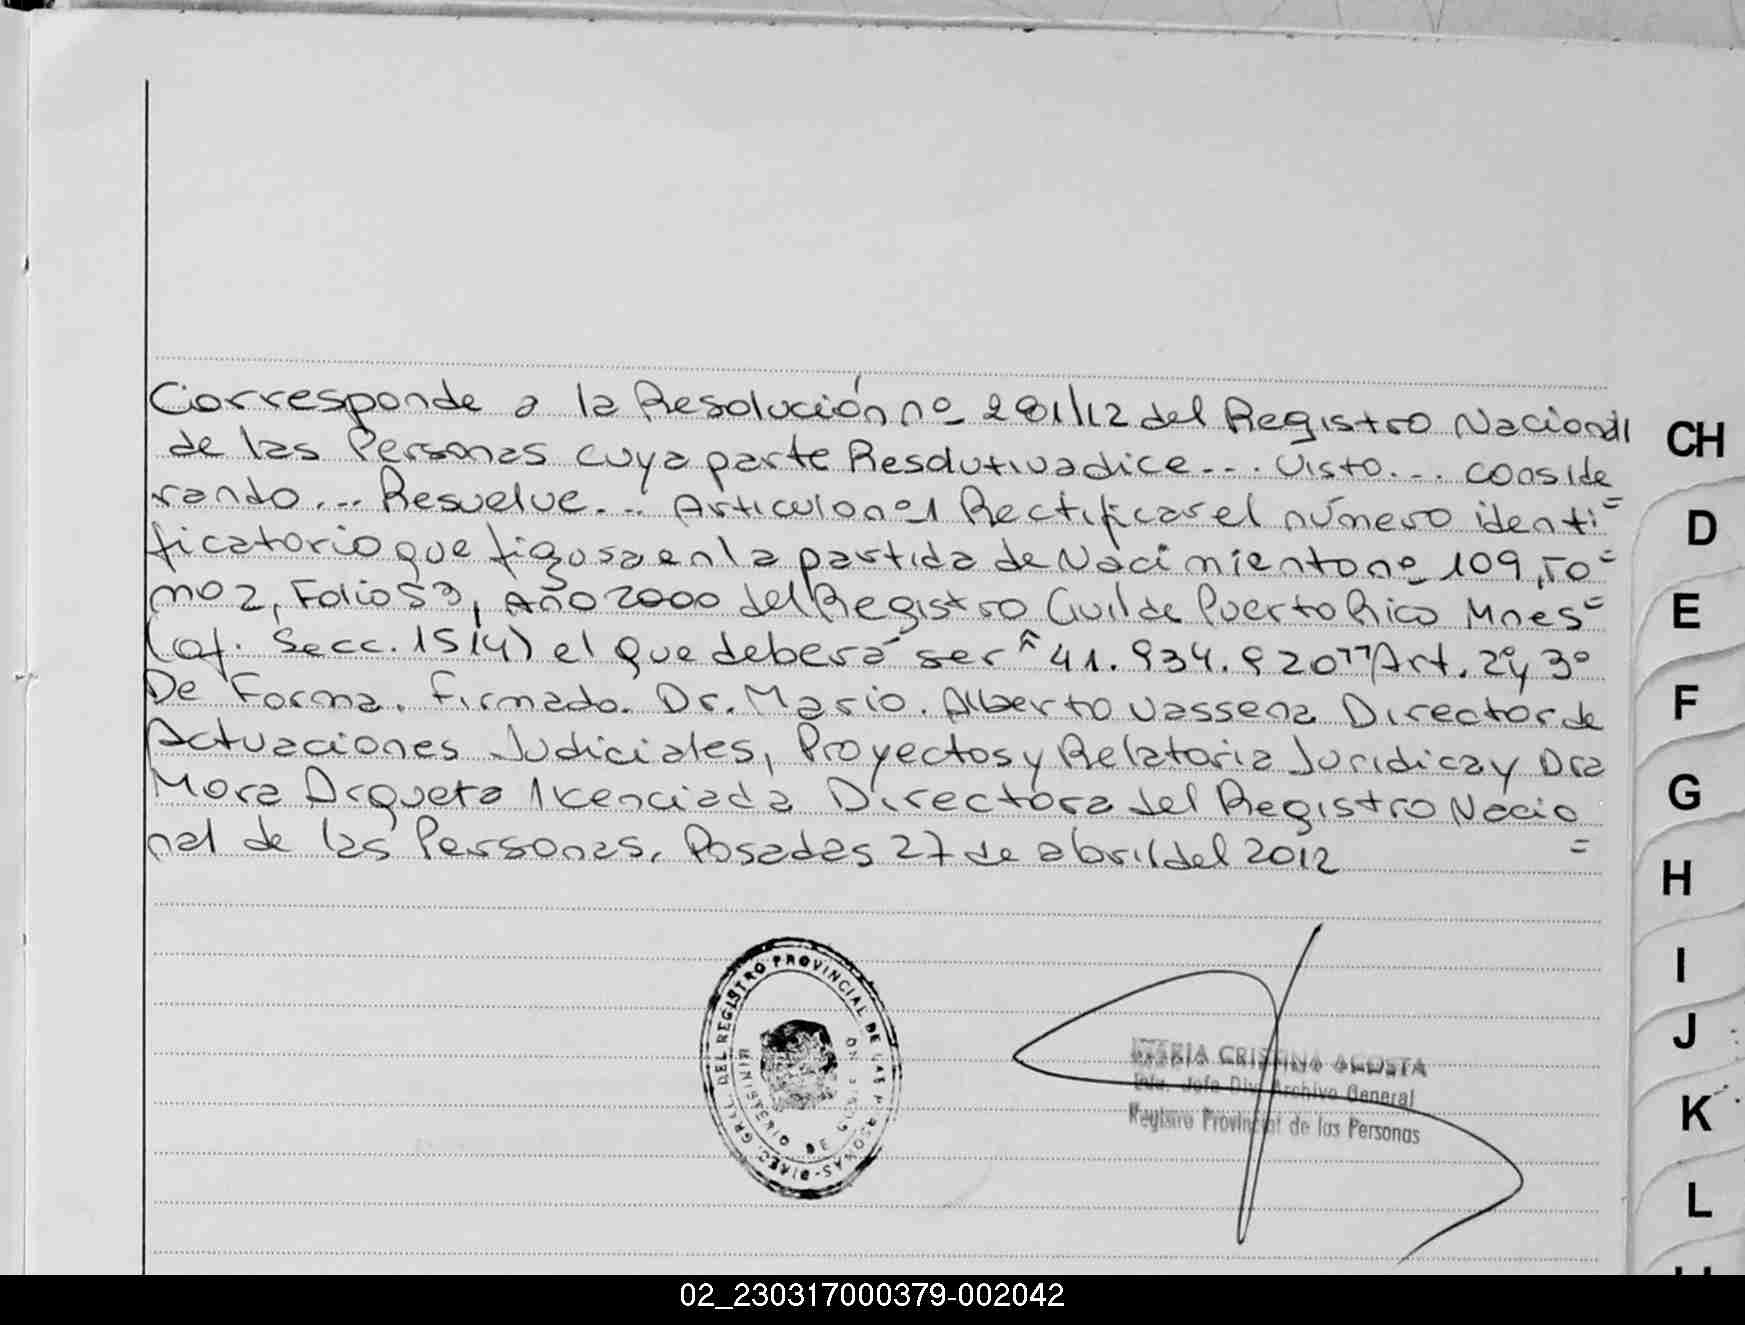 Corresponde a la Resolución nº 281/12 del Registro Nacional
de las Personas cuya parte Resolutiva dice... Visto... conside
rando... Resuelve... Articulo nº1 Rectificar el número identi=
ficatorio que figura en la partida de Nacimiento nº 109, To=
mo 2, Folio 53, Año 2000 del Registro Civil de Puerto Rico Mnes=
(of. Secc. 1514) el que deberá ser "41.934.920" Art. 2º y 3º
De Forma. Firmado. Dr. Mario. Alberto Vassena Director de
Actuaciones Judiciales, Proyectos y Relatoria Juridica y Dra
Mora Arqueta licenciada Directora del Registro Nacio
nal de las Personas. Posadas 27 de abril del 2012 =
DIREC. GRAL. DEL REGISTRO PROVINCIAL DE LAS PERSONAS
MARIA CRISTINA ACOSTA
Jefe Div. Archivo General
Registro Provincial de las Personas
CH
D
E
F
G
H
I
J
K
L
02_230317000379-002042